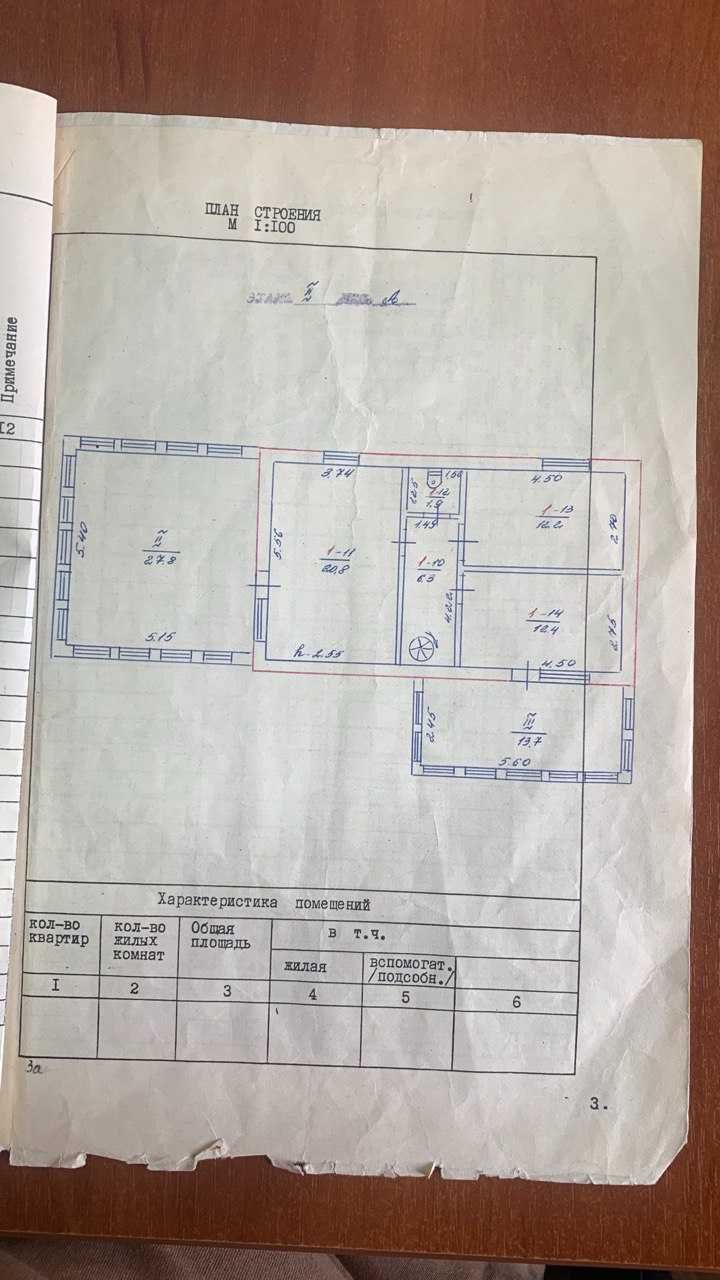 Примечание
12
ПЛАН СТРОЕНИЯ
М I:100
ЭТАЖ II А
3.74
1.50
4.50
1.25
1-12
1.9
1.49
1-13
12.2
2.70
5.40
II
27.8
5.56
1-11
20.8
1-10
6.3
4.22
1-14
12.4
2.75
5.15
h-2.55
4.50
2.45
III
13.7
5.60
Характеристика помещений
кол-во квартир
кол-во жилых комнат
Общая площадь
в т.ч.
жилая
вспомогат. /подсобн./
I 2 3 4 5 6
3а
3.